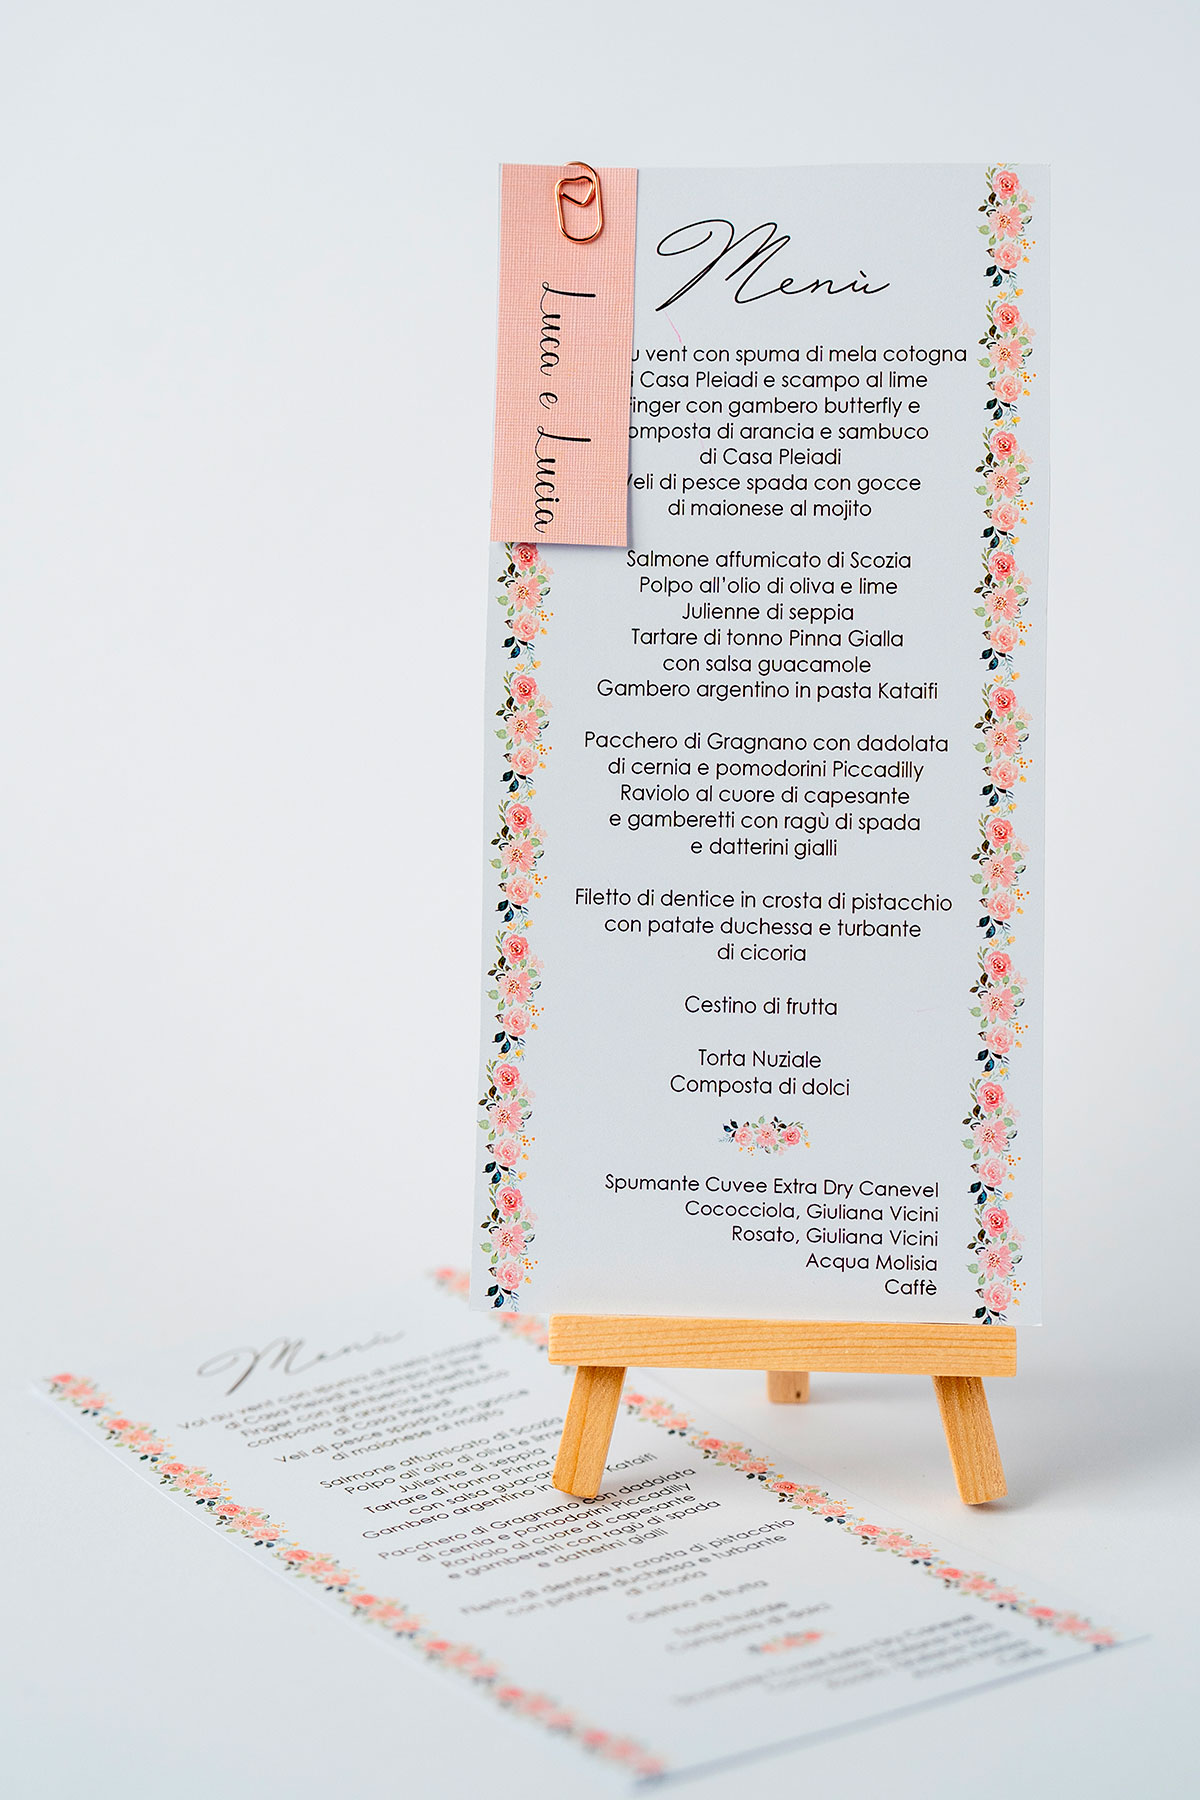 Luca e Lucia
Menù
u vent con spuma di mela cotogna
i Casa Pleiadi e scampo al lime
inger con gambero butterfly e
omposta di arancia e sambuco
di Casa Pleiadi
Veli di pesce spada con gocce
di maionese al mojito
Salmone affumicato di Scozia
Polpo all'olio di oliva e lime
Julienne di seppia
Tartare di tonno Pinna Gialla
con salsa guacamole
Gambero argentino in pasta Kataifi
Pacchero di Gragnano con dadolata
di cernia e pomodorini Piccadilly
Raviolo al cuore di capesante
e gamberetti con ragù di spada
e datterini gialli
Filetto di dentice in crosta di pistacchio
con patate duchessa e turbante
di cicoria
Cestino di frutta
Torta Nuziale
Composta di dolci
Spumante Cuvee Extra Dry Canevel
Cococciola, Giuliana Vicini
Rosato, Giuliana Vicini
Acqua Molisia
Caffè
Menù
Vol au vent con spuma di mela cotogna
di Casa Pleiadi e scampo al lime
Finger con gambero butterfly e
composta di arancia e sambuco
di Casa Pleiadi
Veli di pesce spada con gocce
di maionese al mojito
Salmone affumicato di Scozia
Polpo all'olio di oliva e lime
Julienne di seppia
Tartare di tonno Pinna
con salsa guaca
Gambero argentino in Kataifi
Pacchero di Gragnano con dadolata
di cernia e pomodorini Piccadilly
Raviolo al cuore di capesante
e gamberetti con ragù di spada
e datterini gialli
Filetto di dentice in crosta di pistacchio
con patate duchessa e turbante
di cicoria
Cestino di frutta
Torta Nuziale
Composta di dolci